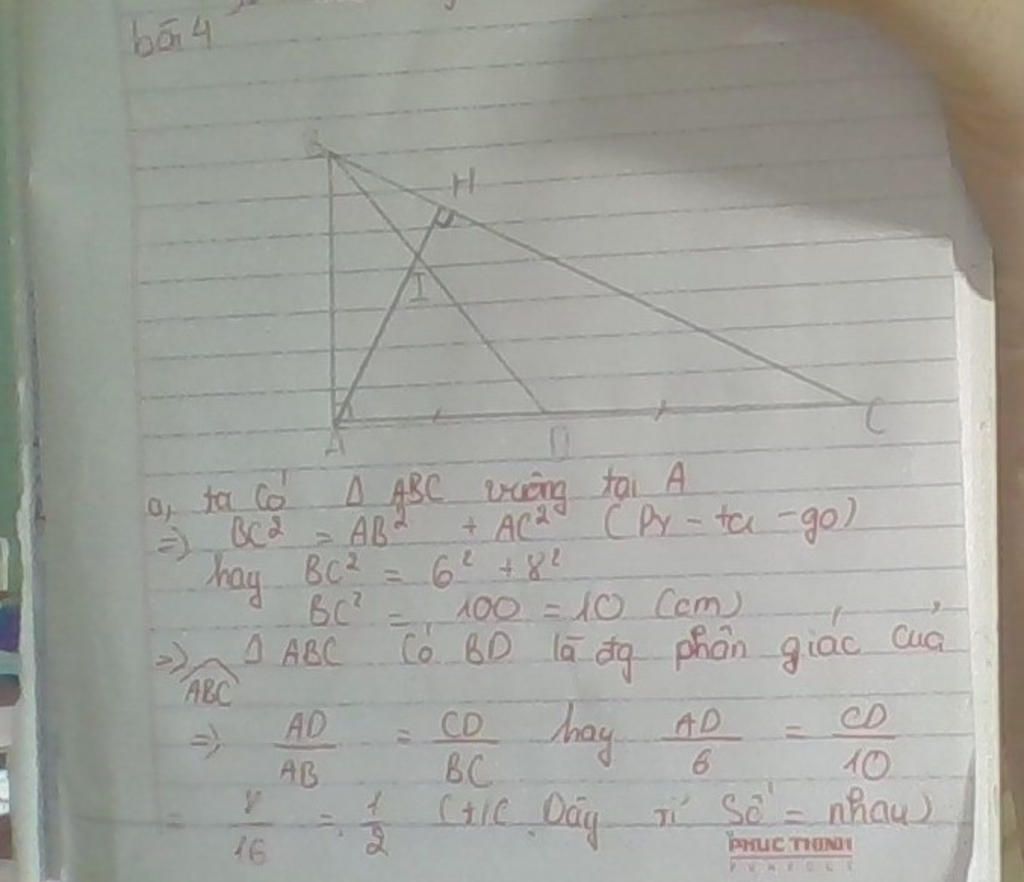 bài 4
B
H
I
A
D
C
a, ta có Δ ABC vuông tại A
=> BC² = AB² + AC² (Py - ta - go)
hay BC² = 6² + 8²
BC² = 100 = 10 (cm)
=> Δ ABC có BD là đg phân giác của
ABC
=> AD/AB = CD/BC hay AD/6 = CD/10
= 8/16 = 1/2 (t/c Dãy tỉ số = nhau)
PHUC THINH